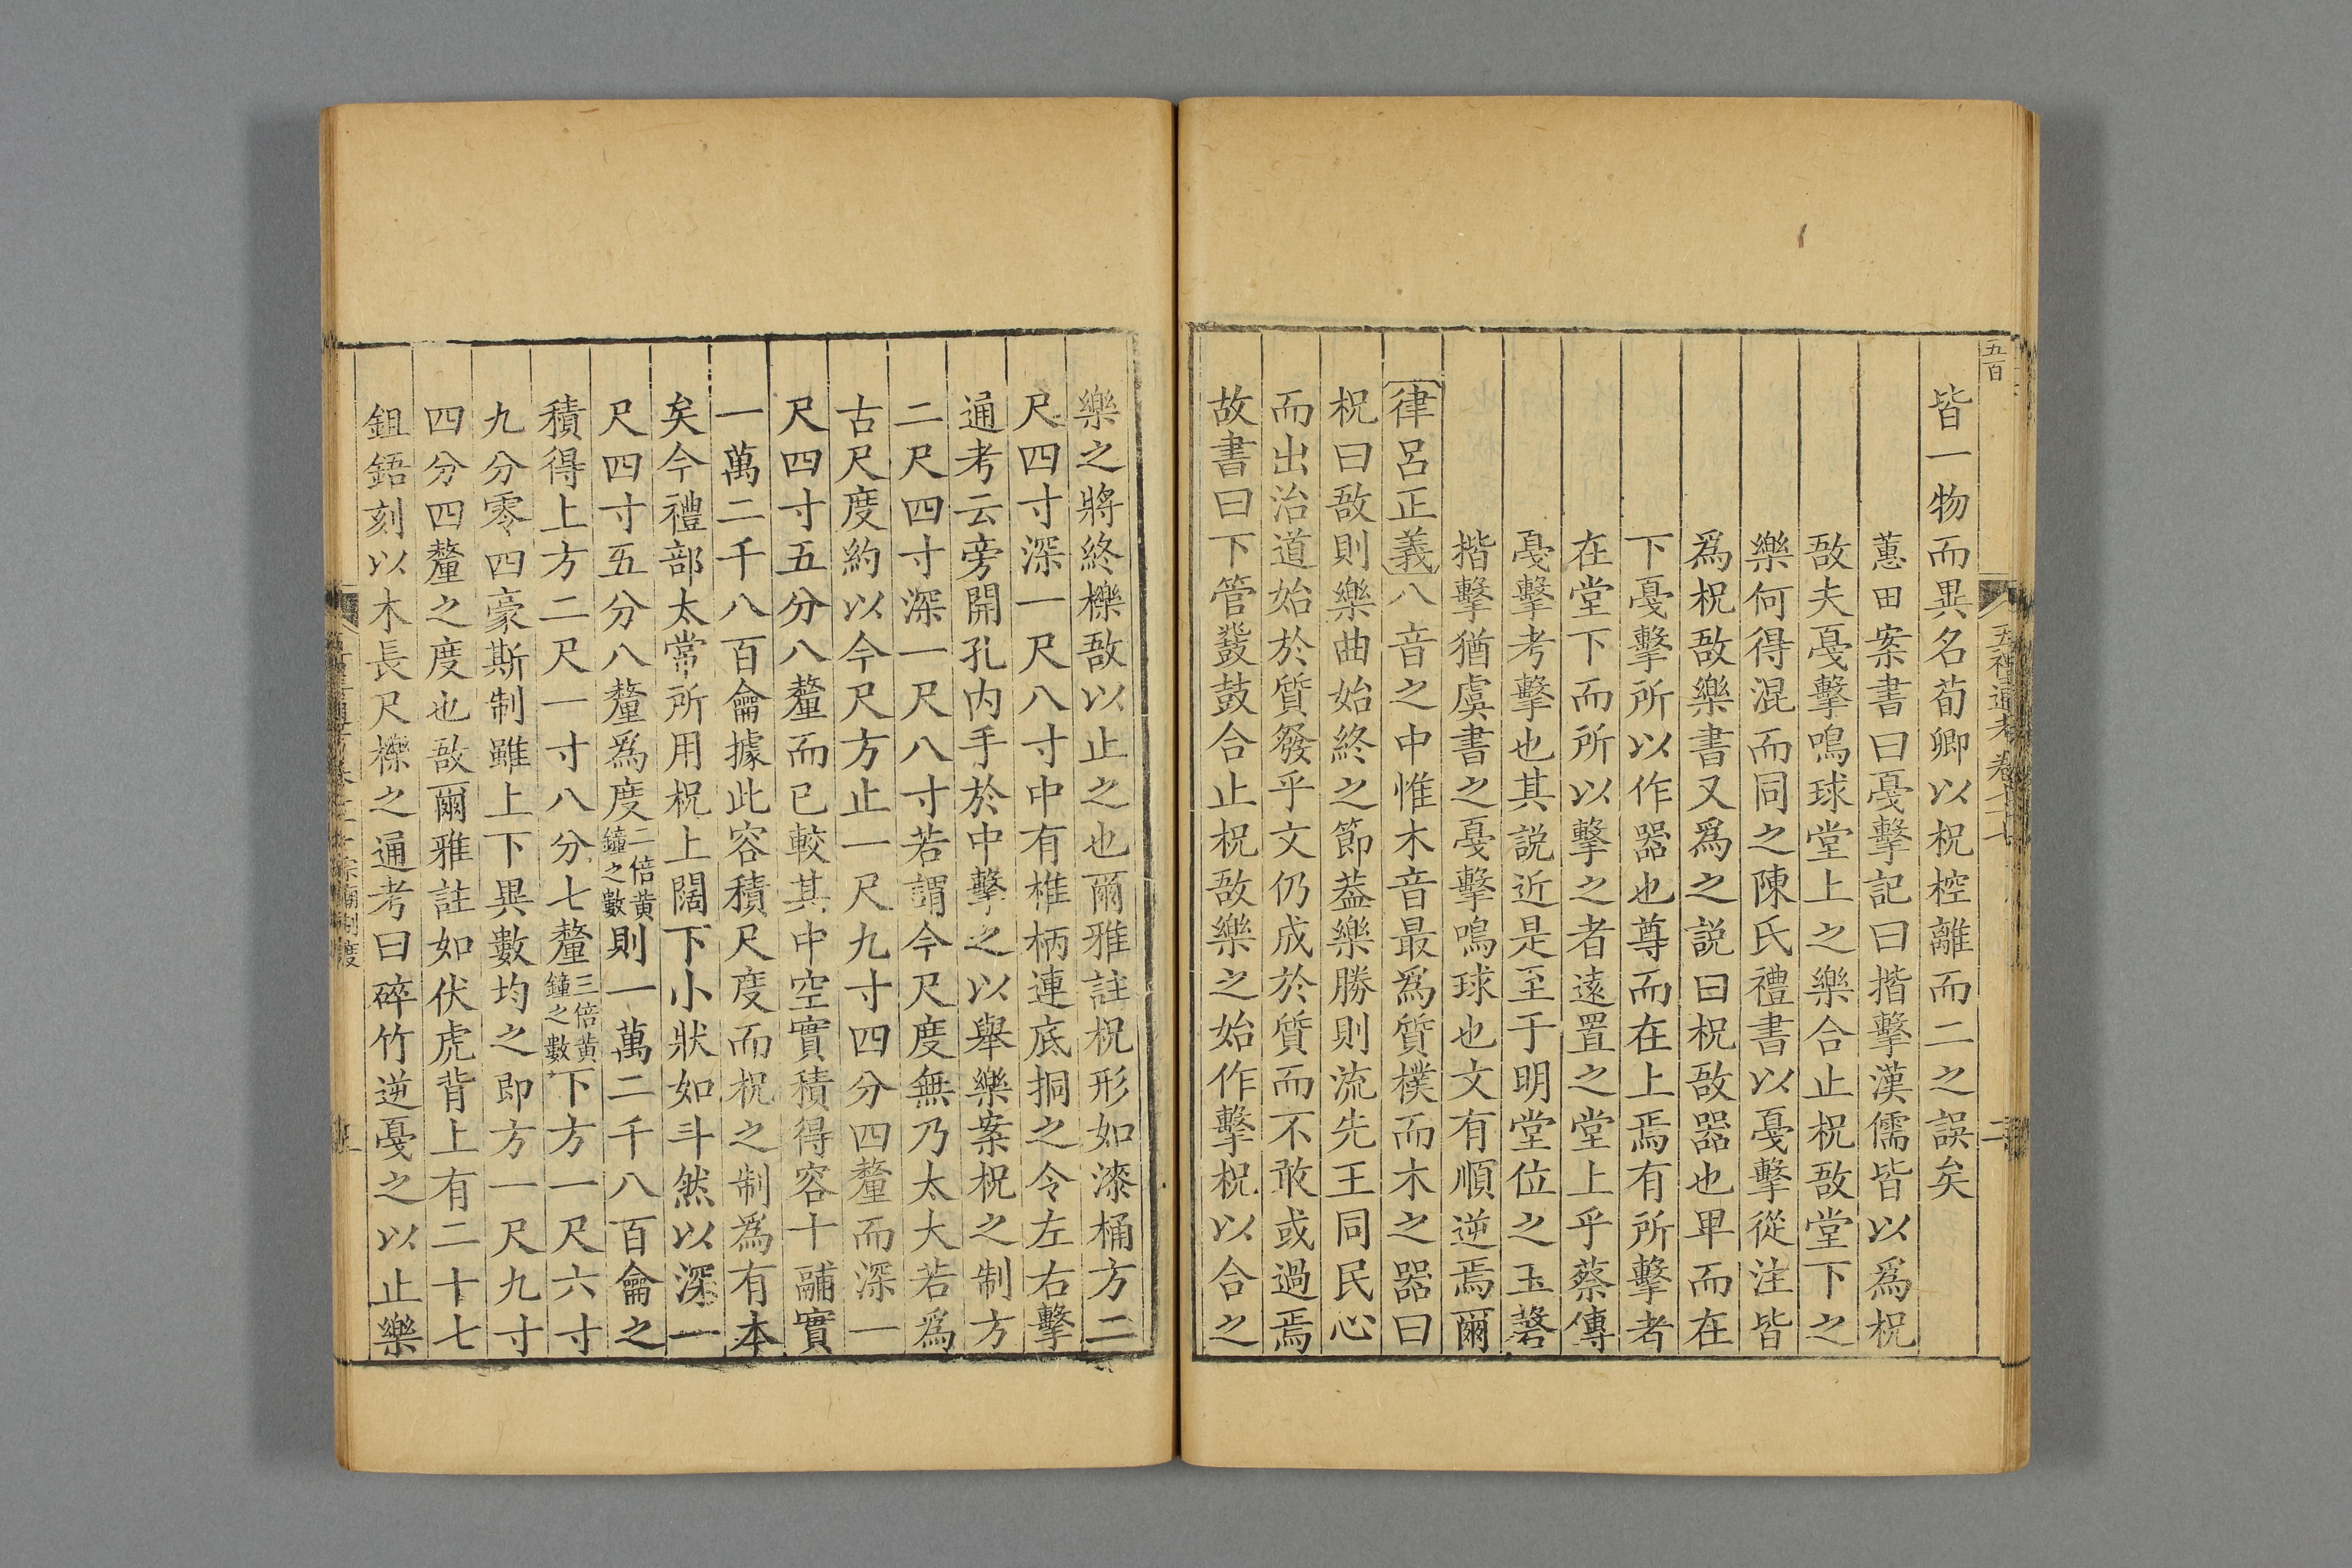 五百
五禮通考卷
二
皆一物而異名荀卿以柷椌離而二之誤矣
蕙田案書曰戞擊記曰揩擊漢儒皆以爲柷
敔夫戞擊鳴球堂上之樂合止柷敔堂下之
樂何得混而同之陳氏禮書以戞擊從注皆
爲柷敔樂書又爲之説曰柷敔器也卑而在
下戞擊所以作器也尊而在上焉有所擊者
在堂下而所以擊之者遠置之堂上乎蔡傳
戞擊考擊也其説近是至于明堂位之玉磬
揩擊猶虞書之戞擊鳴球也文有順逆焉爾
律呂正義八音之中惟木音最爲質樸而木之器曰
柷曰敔則樂曲始終之節葢樂勝則流先王同民心
而出治道始於質發乎文仍成於質而不敢或過焉
故書曰下管鼗鼓合止柷敔樂之始作擊柷以合之
樂之將終櫟敔以止之也爾雅註柷形如漆桶方二
尺四寸深一尺八寸中有椎柄連底挏之令左右擊
通考云旁開孔内手於中擊之以舉樂案柷之制方
二尺四寸深一尺八寸若謂今尺度無乃太大若爲
古尺度約以今尺方止一尺九寸四分四釐而深一
尺四寸五分八釐而已較其中空實積得容十鬴實
一萬二千八百龠據此容積尺度而柷之制爲有本
矣今禮部太常所用柷上闊下小狀如斗然以深一
尺四寸五分八釐爲度二倍黄鐘之數則一萬二千八百龠之
積得上方二尺一寸八分七釐三倍黄鐘之數下方一尺六寸
九分零四豪斯制雖上下異數均之即方一尺九寸
四分四釐之度也敔爾雅註如伏虎背上有二十七
鉏鋙刻以木長尺櫟之通考曰碎竹逆戞之以止樂
宗廟制度